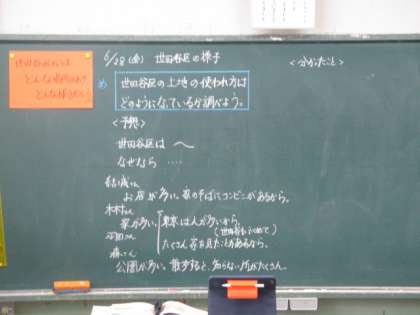 世田谷区には
どんな場所があって
6/28(金) 世田谷区の様子
<分かったこと>
め
世田谷区の土地の使われ方は
どのようになっているか調べよう。
<予想>
世田谷区は 〜
なぜなら ‥‥
結成さん
お店が多い。家のそばにコンビニがあるから。
木村さん
家が多い。
東京は人が多いから。
さん
たくさん家を見たことがあるから。
森さん
公園が多い。散歩すると、知らない所がたくさん。